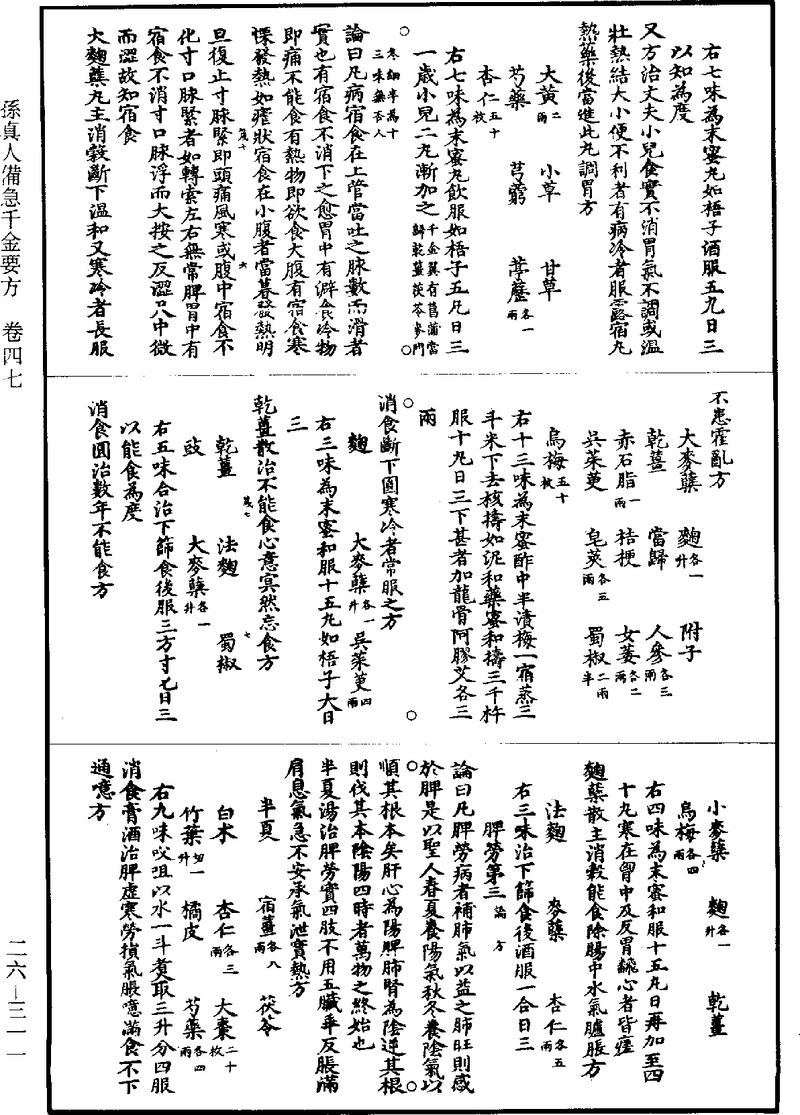 右七味為末蜜丸如梧子酒服五丸日三
以知為度
又方治丈夫小兒食實不消胃氣不調或温
壯熱結大小便不利者有病冷者服露宿丸
熱藥後當進此丸調胃方
大黃二兩 小草 甘草
芍藥 芎藭 葶藶各一兩
杏仁五十枚
右七味為末蜜丸飲服如梧子五丸日三
一歲小兒二丸漸加之千金翼有菖蒲當歸乾薑茯苓麥門
冬細辛為十三味無杏人
論曰凡病宿食在上管當吐之脉數而滑者
實也有宿食不消下之愈胃中有澼食冷物
即痛不能食有熱物即欲食大腹有宿食寒
慄發熱如瘧狀宿食在小腹者當暮發熱明
旦復止寸脉緊即頭痛風寒或腹中宿食不
化寸口脉緊者如轉索左右無常脾胃中有
宿食不消寸口脉浮而大按之反澀尺中微
而澀故知宿食
大麴蘗丸主消穀斷下温和又寒冷者長服
不患霍亂方
大麥蘗 麴各一升 附子
乾薑 當歸 人參各三兩
赤石脂一兩 桔梗 女萎各二兩
吳茱萸 皂莢各五兩 蜀椒二兩半
烏梅五十枚
右十三味為末蜜酢中半漬梅一宿蒸三
斗米下去核擣如泥和藥蜜和擣三千杵
服十丸日三下甚者加龍骨阿膠艾各三
兩
消食斷下圓寒冷者常服之方
麴 大麥蘗各一升 吳茱萸四兩
右三味為末蜜和服十五丸如梧子大日
三
乾薑散治不能食心意冥然忘食方
乾薑 法麴 蜀椒
豉 大麥蘗各一升
右五味合治下篩食後服三方寸匕日三
以能食為度
消食圓治數年不能食方
小麥蘗 麴各一升 乾薑
烏梅各四兩
右四味為末蜜和服十五丸日再加至四
十丸寒在胷中及反胃飜心者皆瘥
麴蘗散主消穀能食除腸中水氣臚脹方
法麴 麥蘗 杏仁各五兩
右三味治下篩食後酒服一合日三
脾勞第三論 方
論曰凡脾勞病者補肺氣以益之肺旺則感
於脾是以聖人春夏養陽氣秋冬養陰氣以
順其根本矣肝心為陽脾肺腎為陰逆其根
則伐其本陰陽四時者萬物之終始也
半夏湯治脾勞實四肢不用五臟乖反脹滿
肩息氣急不安承氣泄實熱方
半夏 宿薑各八兩 茯苓
白朮 杏仁各三兩 大棗二十枚
竹葉切一升 橘皮 芍藥各四兩
右九味㕮咀以水一斗煑取三升分四服
消食膏酒治脾虛寒勞損氣脹噫滿食不下
通噫方
孫真人備急千金要方 卷四七
二六—三一一